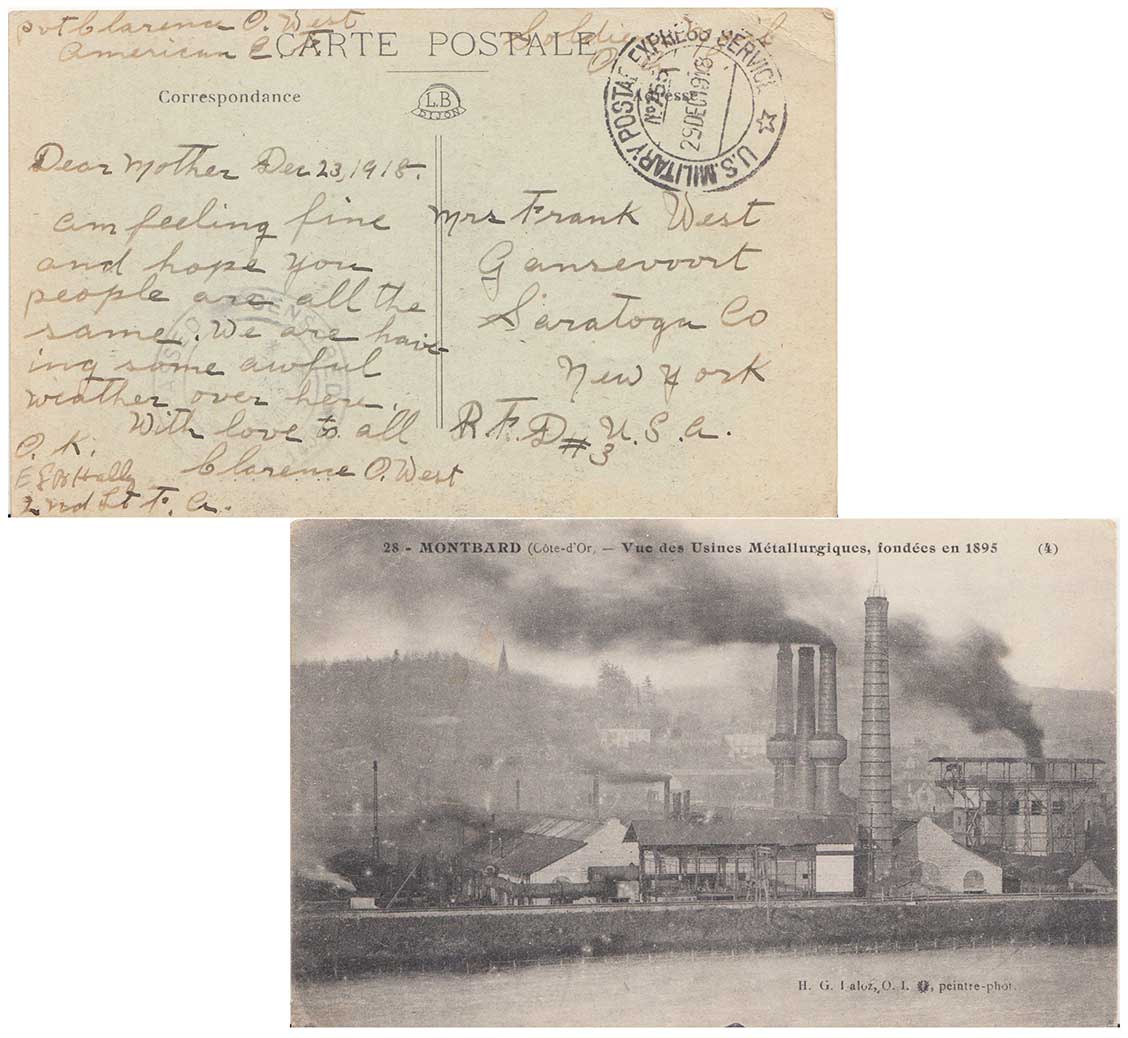 Pvt Clarence O. West
American E. F.
Soldier
CARTE POSTALE
Correspondance
Adresse
L.B
DIJON
U.S. MILITARY POSTAL EXPRESS SERVICE
No 755
29 DEC 1918
Dear Mother Dec 23, 1918.
am feeling fine
and hope you
people are all the
same. We are hav-
ing some awful
weather over here.
With love to all
Clarence O. West
O. K.
2nd Lt F. A.
Mrs Frank West
Gansevoort
Saratoga Co
New York
R.F.D #3 U.S.A.
28 - MONTBARD (Côte-d'Or) — Vue des Usines Métallurgiques, fondées en 1895 (4)
H. G. Laloz, O. I., peintre-phot.